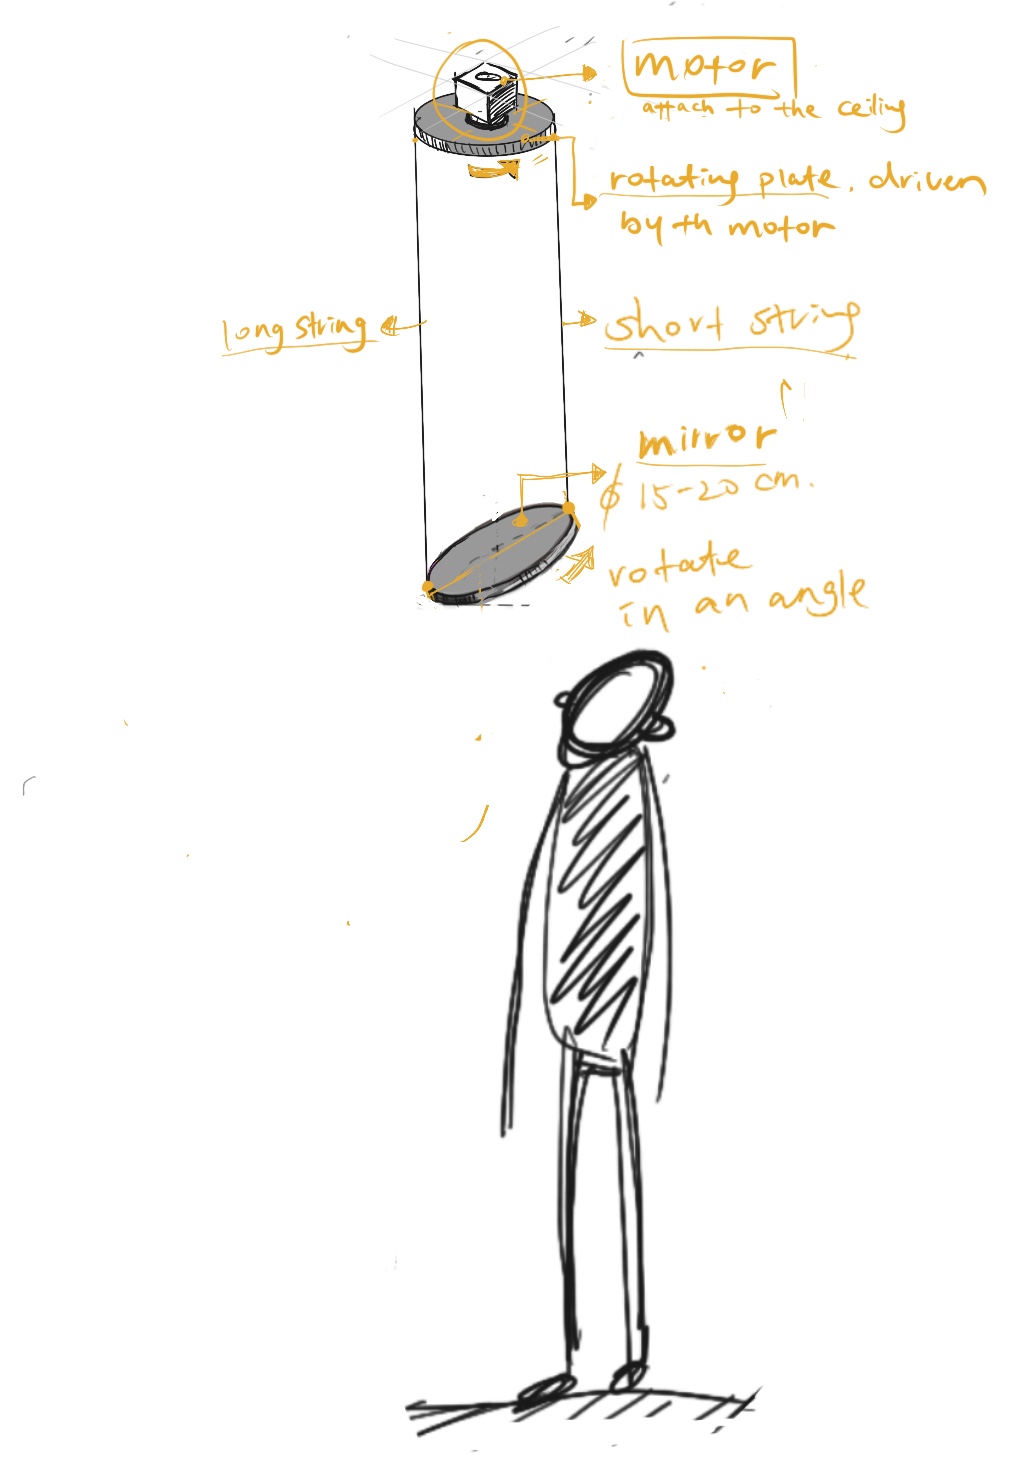 motor
attach to the ceiling
rotating plate, driven
by th motor
long string
short string
mirror
ϕ 15-20 cm.
rotate
in an angle